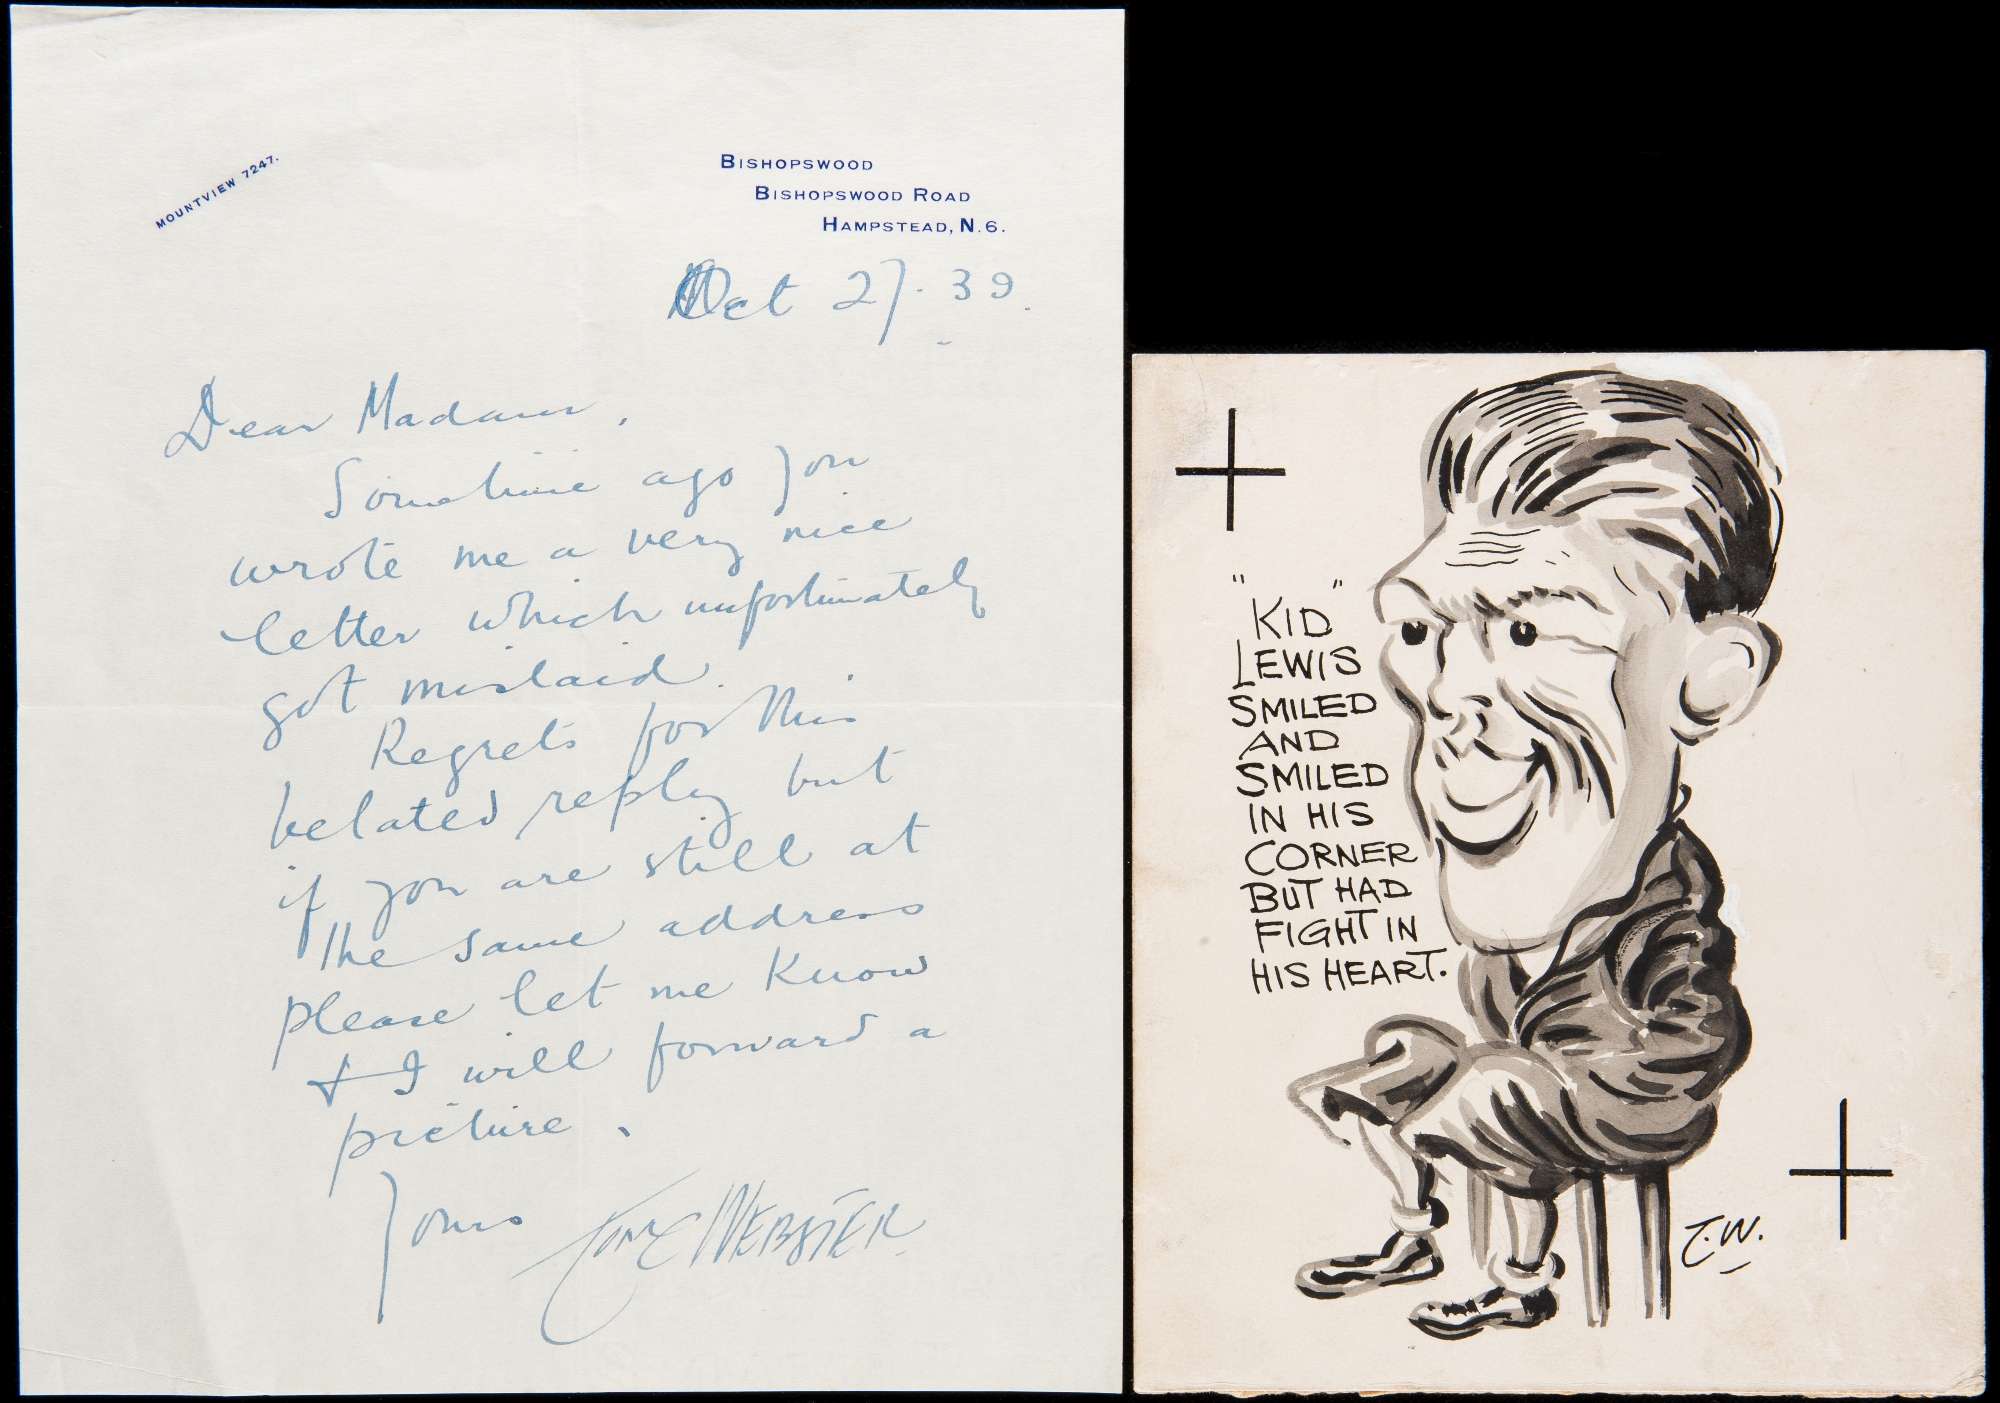 MOUNTVIEW 7247.
BISHOPSWOOD
BISHOPSWOOD ROAD
HAMPSTEAD, N.6.
Oct 27. 39.
Dear Madam,
Sometime ago you
wrote me a very nice
letter which unfortunately
got mislaid.
Regrets for this
belated reply but
if you are still at
the same address
please let me know
& I will forward a
picture.
Yours Tom Webster
"KID"
LEWIS
SMILED
AND
SMILED
IN HIS
CORNER
BUT HAD
FIGHT IN
HIS HEART.
T.W.